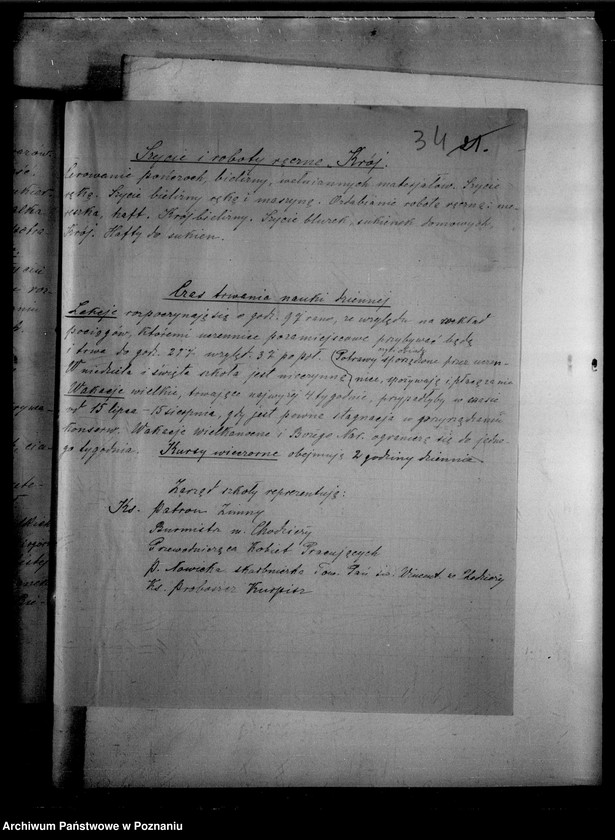 34 21.
Szycie i roboty ręczne, Krój.
Cerowanie pończoch, bielizny, wełniannych materjałów. Szycie
ręką. Szycie bielizny ręką i maszyną. Ozdabianie robotą ręczną: me-
reszka, haft. Krój bielizny. Szycie bluzek, sukienek domowych,
Krój. Hafty do sukien.
Czas trwania nauki dziennej
Lekcje rozpoczynają się o godz. 9 z rano, ze względu na rozkład
pociągów, któremi uczennice pozamiejscowe przybywać będą
i trwa do godz. 2½ wzgl. 3½ po poł. (Potrawy sporządzone przez uczen-
W niedziele i święta szkoła jest nieczynna) nice, spożywają i płacą za nie
Wakacje wielkie, trwające najwyżej 4 tygodnie, przypadłyby w czasie
od 15 lipca - 15 sierpnia, gdy jest pewna stagnacja w
konserw. Wakacje wielkanocne i Bożego Nar. ograniczą się do jedne-
go tygodnia. Kursy wieczorne obejmują 2 godziny dziennie
Zarząd szkoły reprezentują:
Ks. patron Zimny
Burmistrz m. Chodzieży
Przewodnicząca Kobiet Pracujących
p. Nowicka skarbniczka Tow. Pań św. Wincent. w Chodzieży
Ks. proboszcz Kurpisz
Archiwum Państwowe w Poznaniu